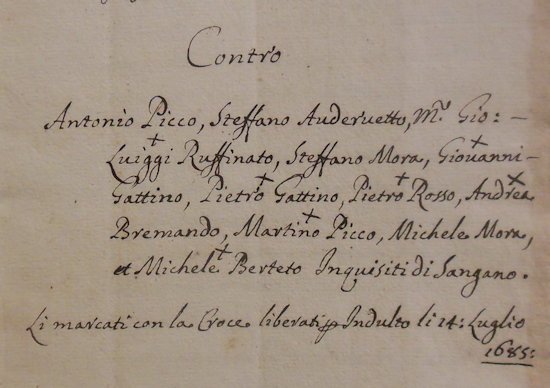 Contro
Antonio Picco, Steffano Auderuetto, M.r Gio: -
Luiggi Ruffinato, Steffano Mora, Giovanni -
Gattino, Pietro Gattino, Pietro Rosso, Andrea
Bremando, Martino Picco, Michele Mora,
et Michele Berteto Inquisiti di Sangano.
Li marcati con la Croce liberati p Indulto li 14: Luglio
1685: